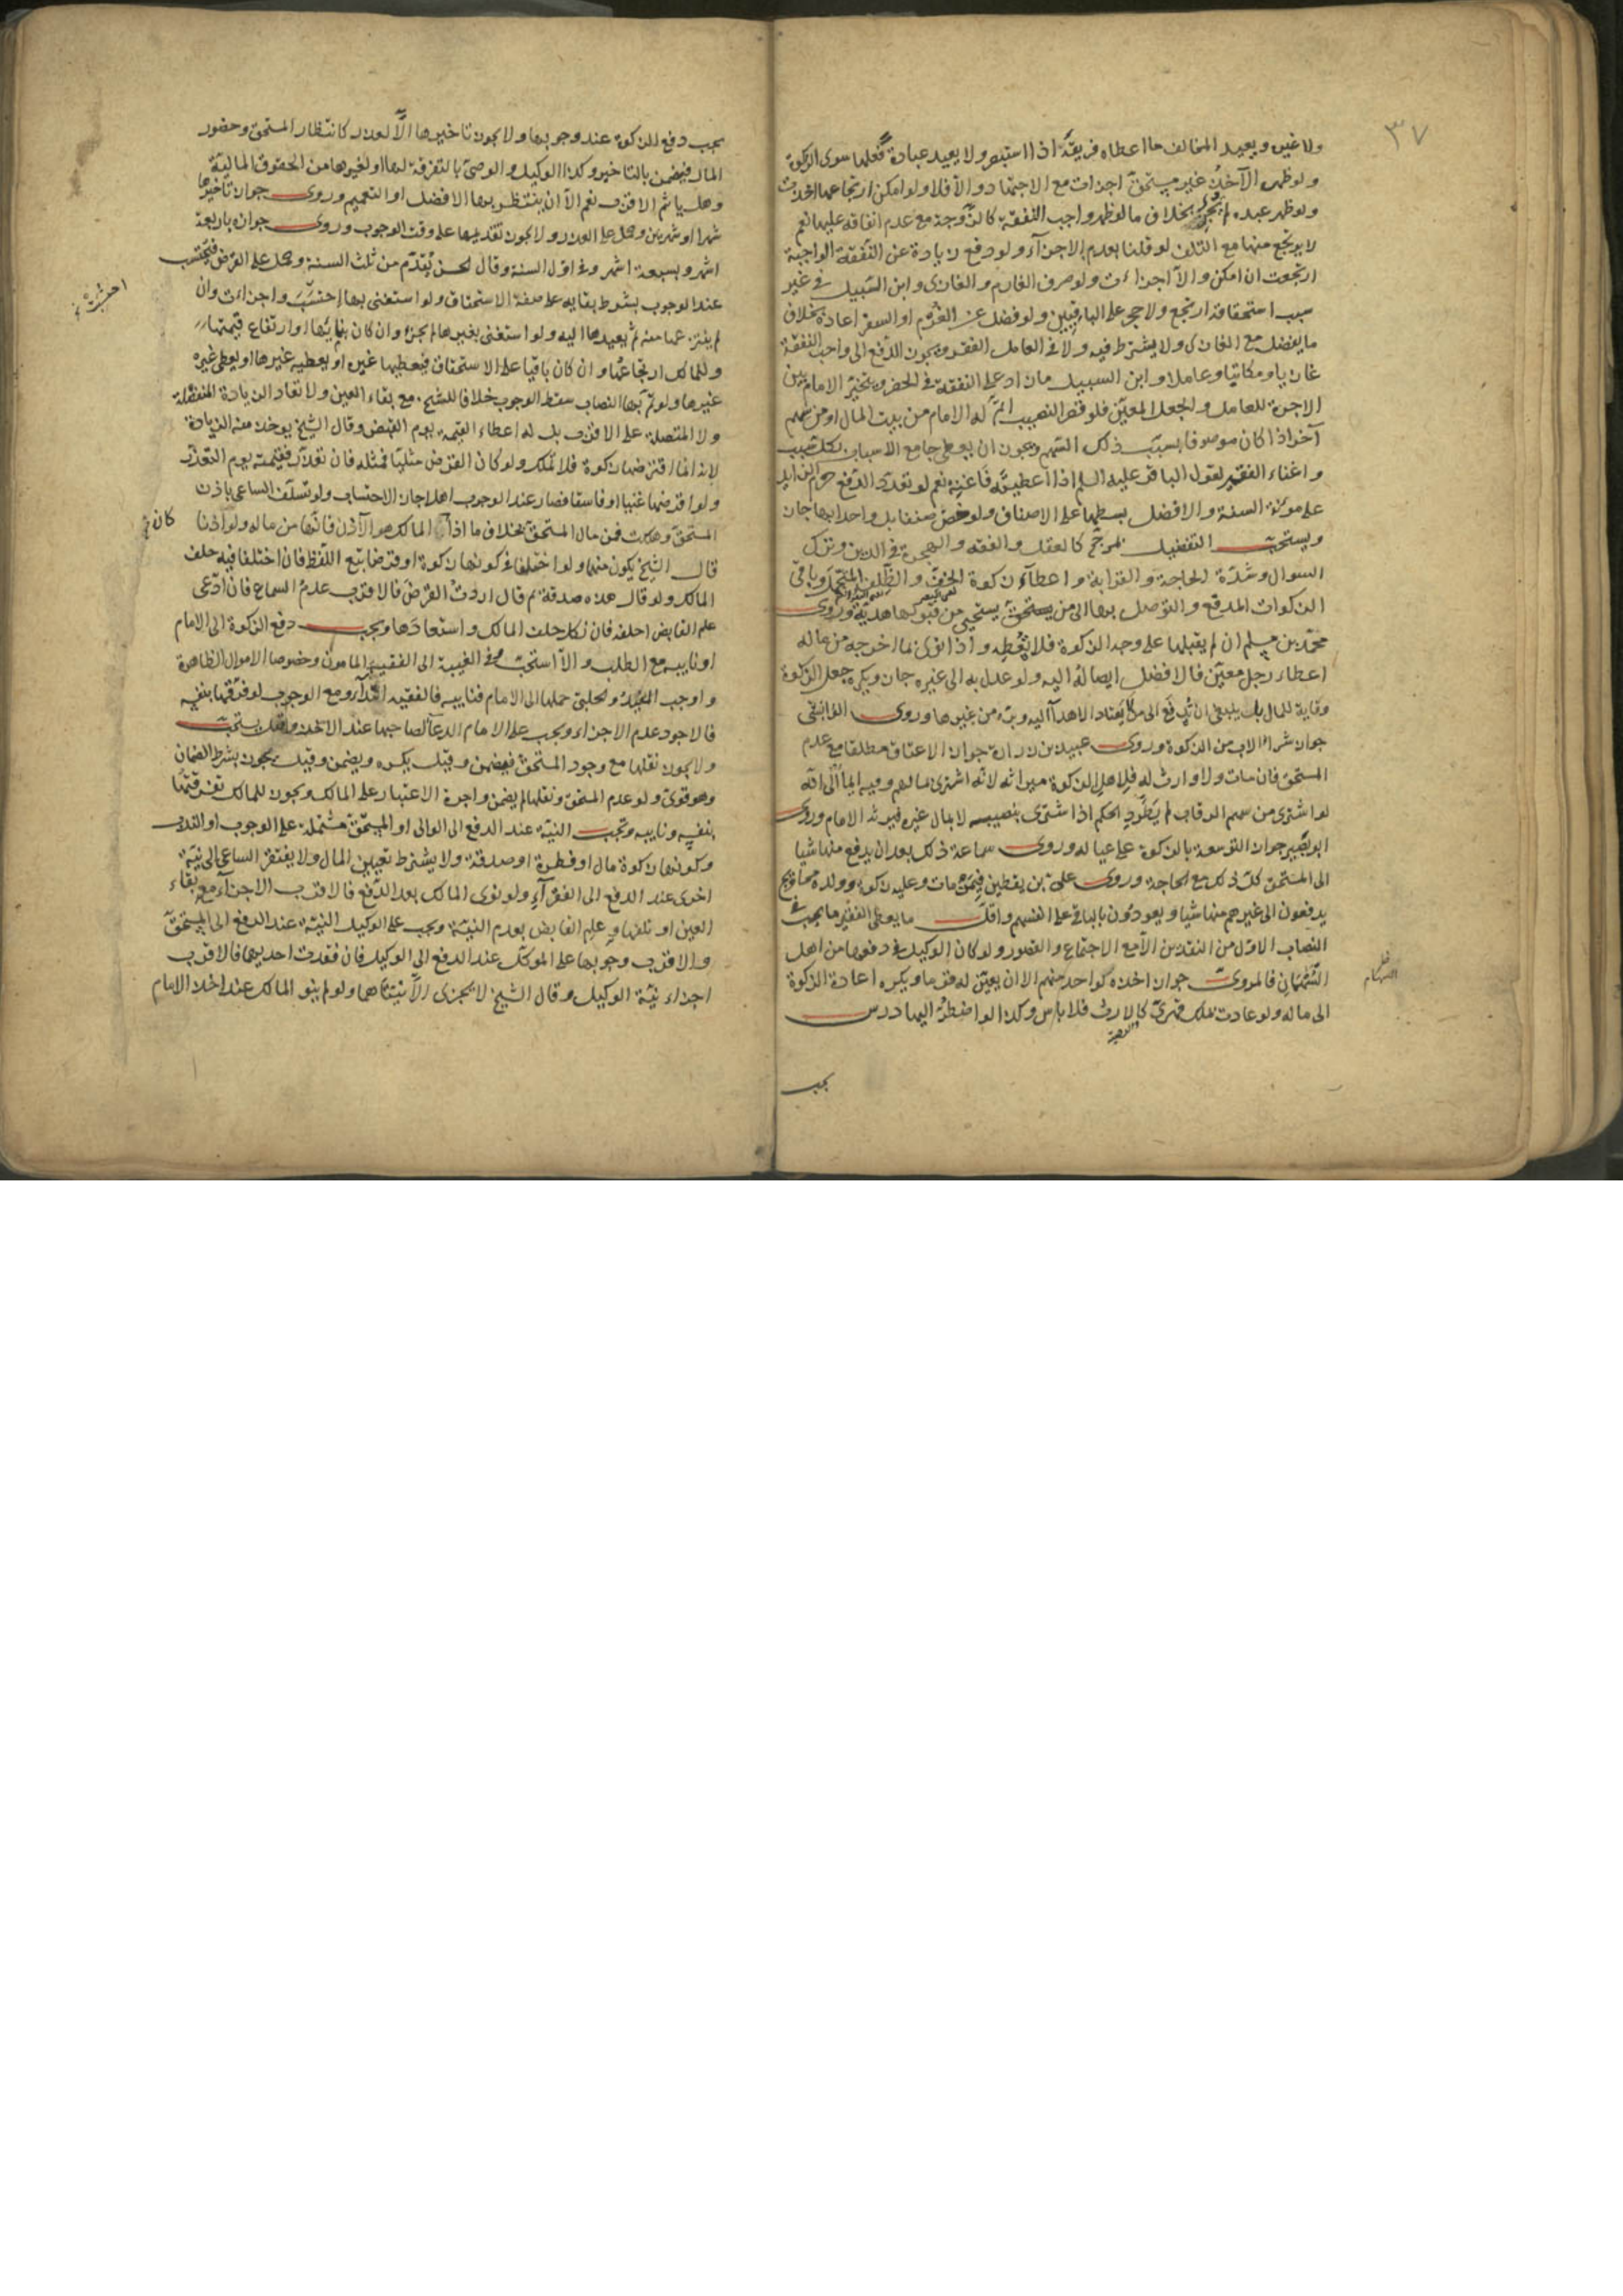 ٣٧
ولا غيره ويعيد المخالف ما اعطاه فريقه اذا استبصر ولا يعيد عبادة فعلها سوى الزكوة
ولو ظهر الآخذ غير مستحق اجزات مع الاجتهاد والا فلا ولو امكن ارتجاعها اخذت
ولو ظهر عبده لم يجز بخلاف ما لو ظهر واجب النفقة كالزوجة مع عدم انفاقه عليها نعم
لا يرتجع منها مع التلف لو قلنا بعدم الاجزآء ولو دفع زيادة عن النفقة الواجبة
ارتجعت ان امكن والا اجزاءت ولو صرف الغارم والغازى وابن السبيل فى غير
سبب استحقاقه ارتجع ولا حجر على الباقيين ولو فضل عن الغرم او السفر اعاده بخلاف
ما يفضل مع الغازى ولا يشترط فيه ولا فى العامل الفقر ويجوز الدفع الى واجب النفقة
غازيا ومكاتبا وعاملا وابن السبيل ما زاد على النفقة فى الحضر ويتخير الامام بين
الاجرة للعامل والجعل المعين فلو قصر النصيب اتم له الامام من بيت المال او من سهم
آخر اذا كان موصوفا بسبب ذلك السهم ويجوز ان يعطى جامع الاسباب بكل سبب
واغناء الفقير لقول الباقر عليه السلم اذا اعطيته فاغنه نعم لو تعدد الدفع حرم الزايد
على مؤنة السنة والافضل بسطها على الاصناف ولو خص صنفا بل واحدا بها جاز
ويستحب التفضيل لمرجح كالعقل والفقه والهجرة فى الدين وترك
السوال وشدة الحاجة والقرابة واعطآء زكوة الخف والظلف المتجمل وباقى
الزكوات المدقع والتوصل بها الى من يستحق يستحيى من قبولها هدية وروى
محمد بن مسلم ان لم يقبلها على وجه الزكوة فلا يعطه واذا نوى بما اخرجه من ماله
اعطاء رجل معين فالافضل ايصاله اليه ولو عدل به الى غيره جاز ويكره جعل الزكوة
وقاية للمال بل ينبغى ان يدفع الى من لا يعتاد الاهدآ اليه وبره من غيرها وروى الوابشى
جواز شراء الاب من الزكوة وروى عبيد بن زرارة جواز الاعتاق مطلقا مع عدم
المستحق فان مات ولا وارث له فلاهل الزكوة ميراثه لانه اشترى بمالهم وفيه ايمآ الى انه
لو اشترى من سهم الرقاب لم يطرد الحكم اذا اشترى بنصيبه لا بمال غيره فيرثه الامام وروى
ابو بصير جواز التوسعة بالزكوة على عياله وروى سماعة ذلك بعد ان يدفع منها شيا
الى المستحق كل ذلك مع الحاجة وروى على بن يقطين فيمن مات وعليه زكوة وولده محاويج
يدفعون الى غيرهم منها شيا ويعودون بالباقى على انفسهم واقل ما يعطى الفقير ما يجب فى
النصاب الاول من النقدين الا مع الاجتماع والقصور ولو كان الوكيل فى دفعها من اهل
السهمان فالمروى جواز اخذه كواحد منهم الا ان يعين له قوما ويكره اعادة الزكوة
الى ماله ولو عادت بملك قهرى كالارث فلا باس وكذا لو اضطر اليها درس
السهام
يجب
يجب دفع الزكوة عند وجوبها ولا يجوز تاخيرها الا لعذر كانتظار المستحق وحضور
المال فيضمن بالتاخير وكذا الوكيل والوصى بالتفرقة لها او لغيرها من الحقوق المالية
وهل ياثم الاقرب نعم الا ان ينتظر بها الافضل او التعميم وروى جواز تاخيرها
شهرا او شهرين وحمل على العذر ولا يجوز تقديمها على وقت الوجوب وروى جوازه باربعة
اشهر وبسبعة اشهر وفى اول السنة وقال الحسن يقدم من ثلث السنة وحمل على القرض فيحتسب
عند الوجوب بشرط بقايه على صفة الاستحقاق ولو استغنى بها احتسب واجزاءت وان
لم ينتزعها منه ثم يعيدها اليه ولو استغنى بغيرها لم يجز وان كان بنمايها او ارتفاع قيمتها
وللمالك ارتجاعها وان كان باقيا على الاستحقاق فيعطيها غيره او يعطيه غيرها او يعطى غيره
غيرها ولو تم بها النصاب سقط الوجوب خلافا للشيخ مع بقاء العين ولا تعاد الزيادة المنفصلة
ولا المتصلة على الاقرب بل له اعطاء القيمة يوم القبض وقال الشيخ يوخذ منه الزيادة
لانه انما اقترضها زكوة فلا تملك ولو كان القرض مثليا فمثله فان تعذر فقيمته يوم التعذر
ولو اقترضها غنيا او فاسقا فصار عند الوجوب اهلا جاز الاحتساب ولو تسلف الساعى باذن
المستحق وهلكت فمن مال المستحق بخلاف ما اذا كان المالك هو الآذن فانها من ماله ولو اذنا
قال الشيخ يكون منهما ولو اختلفا فى كونها زكوة او قرضا تبع اللفظ فان اختلفا فيه حلف
المالك ولو قال هذه صدقة ثم قال اردت القرض فالاقرب عدم السماع فان ادعى
علم القابض احلفه فان نكل حلف المالك واستعادها ويجب دفع الزكوة الى الامام
او نايبه مع الطلب والا استحب وفى الغيبة الى الفقيه المامون وخصوصا الاموال الظاهرة
واوجب المفيد والحلبى حملها الى الامام فنايبه فالفقيه ابتدآء ومع الوجوب لو فرقها بنفسه
فالاجود عدم الاجزاء ويجب على الامام الدعآ لصاحبها عند الاخذ وقيل يستحب
ولا يجوز نقلها مع وجود المستحق فيضمن وقيل يكره ويضمن وقيل يجوز بشرط الضمان
وهو قوى ولو عدم المستحق ونقلها لم يضمن واجرة الاعتبار على المالك ويجوز للمالك تفرقتها
بنفسه ونايبه وتجب النية عند الدفع الى الوالى او المستحق مشتملة على الوجوب او الندب
وكونها زكوة مال او فطرة او صدقة ولا يشترط تعيين المال ولا يفتقر الساعى الى نية
اخرى عند الدفع الى الفقرآء ولو نوى المالك بعد الدفع فالاقرب الاجزآء مع بقاء
العين او تلفها وعلم القابض بعدم النية ويجب على الوكيل النية عند الدفع الى المستحق
والاقرب وجوبها على الموكل عند الدفع الى الوكيل فان فقدت احديهما فالاقرب
اجزاء نية الوكيل وقال الشيخ لا يجزى الا نيتاهما ولو لم ينو المالك عند اخذ الامام